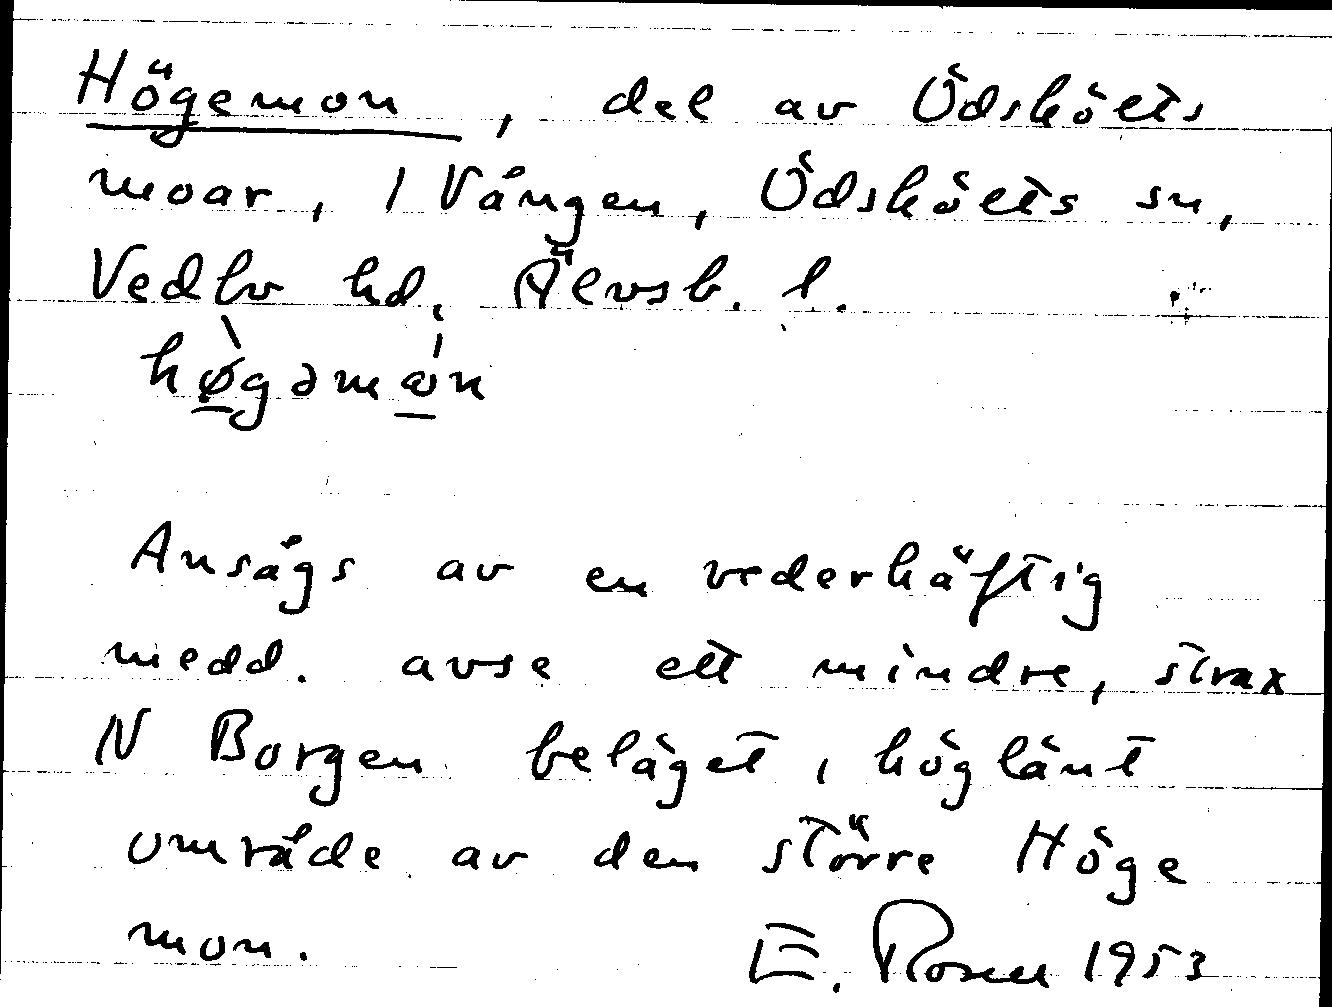 Högemon, del av Ödskölts
moar, 1 Vången, Ödskölts sn,
Vedbo hd. Älvsb. l.
hø̀gəmón
Ansågs av en vederhäftig
medd. avse ett mindre, strax
N Borgen beläget, höglänt
område av den större Höge
mon.
E. Rosen 1953